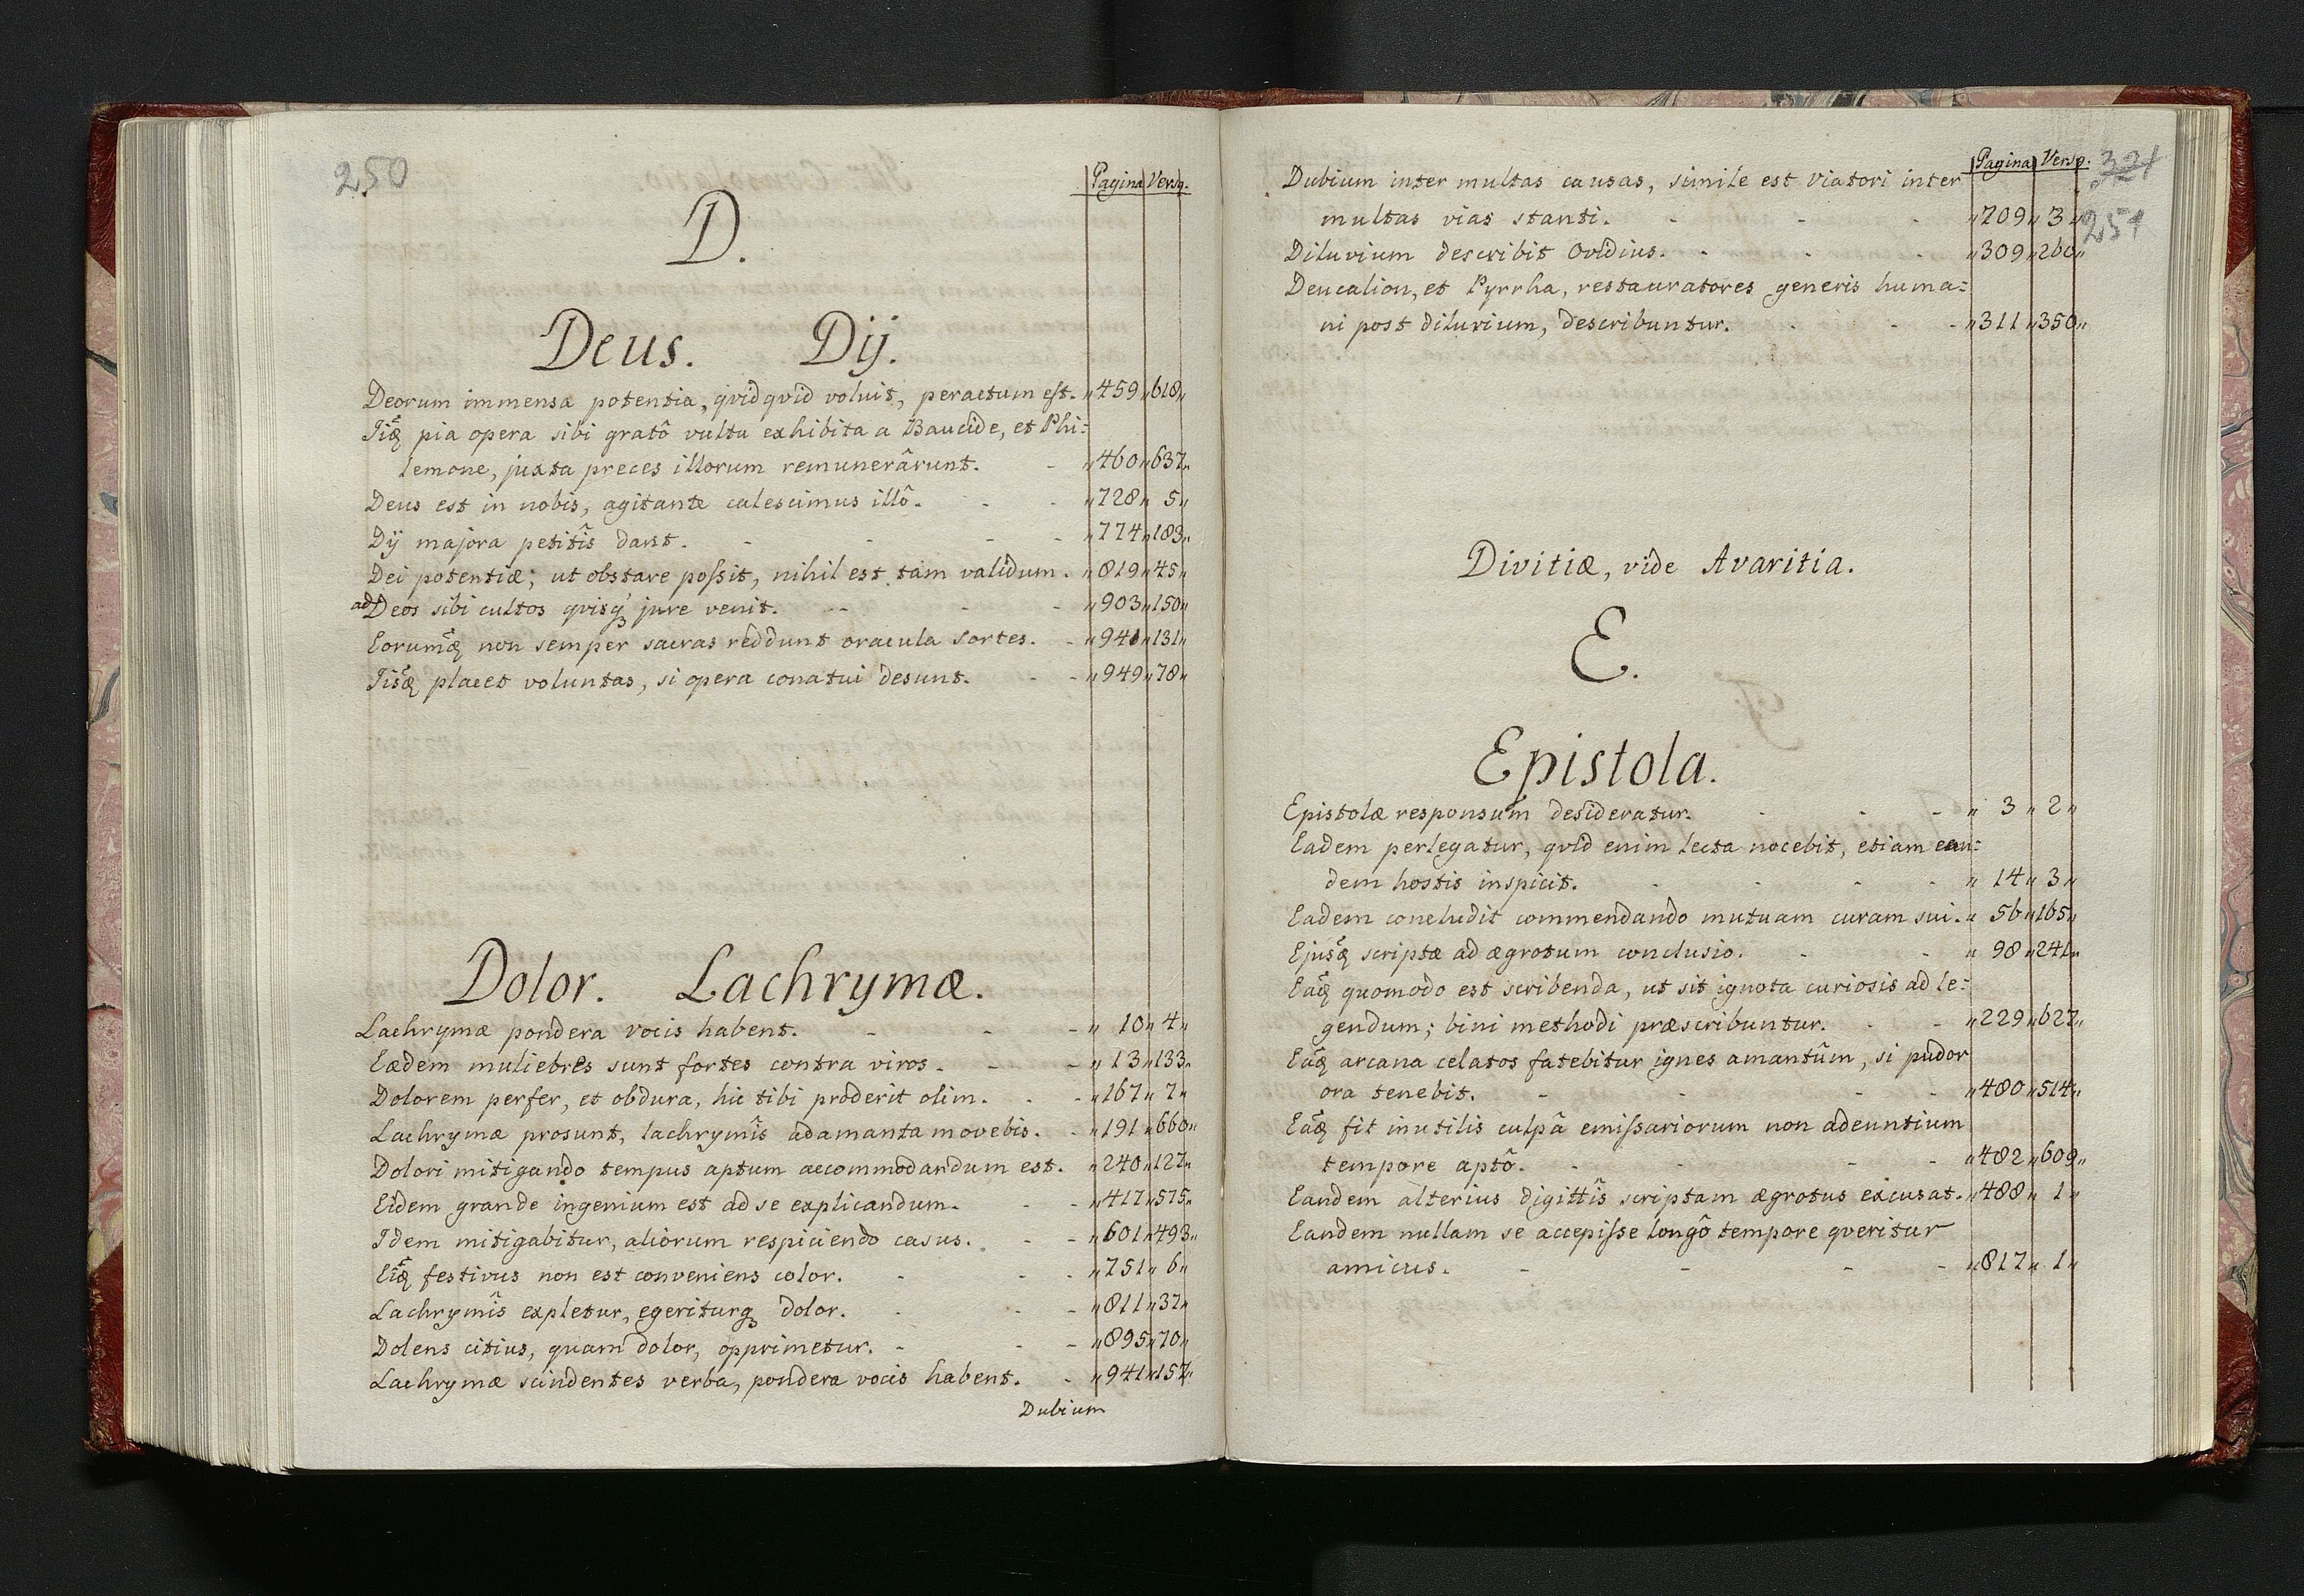 250
Pagina Versq.
D.
Deus. Dij.
Deorum immensa potentia, qvidqvid voluit, peractum est. „459„618„
pia opera sibi gratô vultu exhibita a Baucide, et Phi:
lemone, juxta preces illorum remunerârunt. - „460„637„
Deus est in nobis, agitante calescimus illô. - - „728„ 5„
Dij majora petitîs dant. - - - - „774„183„
Dei potentiæ; ut obstare possit, nihil est tam validum. „819„45„
ad Deos sibi cultos qvisq; jure venit. - - - „903„150„
non semper sacras reddunt oracula sortes. - „941„131„
placet voluntas, si opera conatui desunt. - - „949„78„
Dolor. Lachrymæ.
Lachrymæ pondera vocis habent. - - - „ 10„ 4„
Eædem muliebres sunt fortes contra viros. - - „ 13„133„
Dolorem perfer, et obdura, hic tibi proderit olim. - - „167„ 7„
Lachrymæ prosunt, lachrymîs adamanta movebis. - „191„660„
Dolori mitigando tempus aptum accommodandum est. „240„127„
Eidem grande ingenium est ad se explicandum. - - „417„575„
Idem mitigabitur, aliorum respiciendo casus. - - „601„493„
festivus non est conveniens color. - - - „751„ 6„
Lachrymîs expletur, egeriturq; dolor. - - - „811„37„
Dolens citius, quam dolor, opprimetur. - - - „895„70„
Lachrymæ scindentes verba, pondera vocis habent. - „941„157„
Dubium
Pagina Versq. 321
Dubium inter multas causas, simile est viatori inter
multas vias stanti. - - - „709„ 3„
251
Diluvium describit Ovidius. - - - „309„260„
Deucalion, et Pyrrha, restauratores generis huma:
ni post diluvium, describuntur. - - - „311„350„
Divitiæ, vide Avaritia.
E.
Epistola.
Epistolæ responsum desideratur. - - - „ 3„ 2„
Eadem perlegatur, qvid enim lecta nocebit, etiam ean:
dem hostis inspicit. - - - - „ 14„ 3„
Eadem concludit commendando mutuam curam sui. „ 56„165„
scriptæ ad ægrotum conclusio. - - „ 98„241„
quomodo est scribenda, ut sit ignota curiosis ad le:
gendum; bini methodi præscribuntur. - - „229„627„
arcana celatos fatebitur ignes amantûm, si pudor
ora tenebit. - - - - „480„514„
fit inutilis culpâ emissariorum non adeuntium
tempore aptô. - - - - „482„609„
Eandem alterius digittîs scriptam ægrotus excusat. „488„ 1„
Eandem nullam se accepisse longô tempore qveritur
amicus. - - - - „817„ 1„